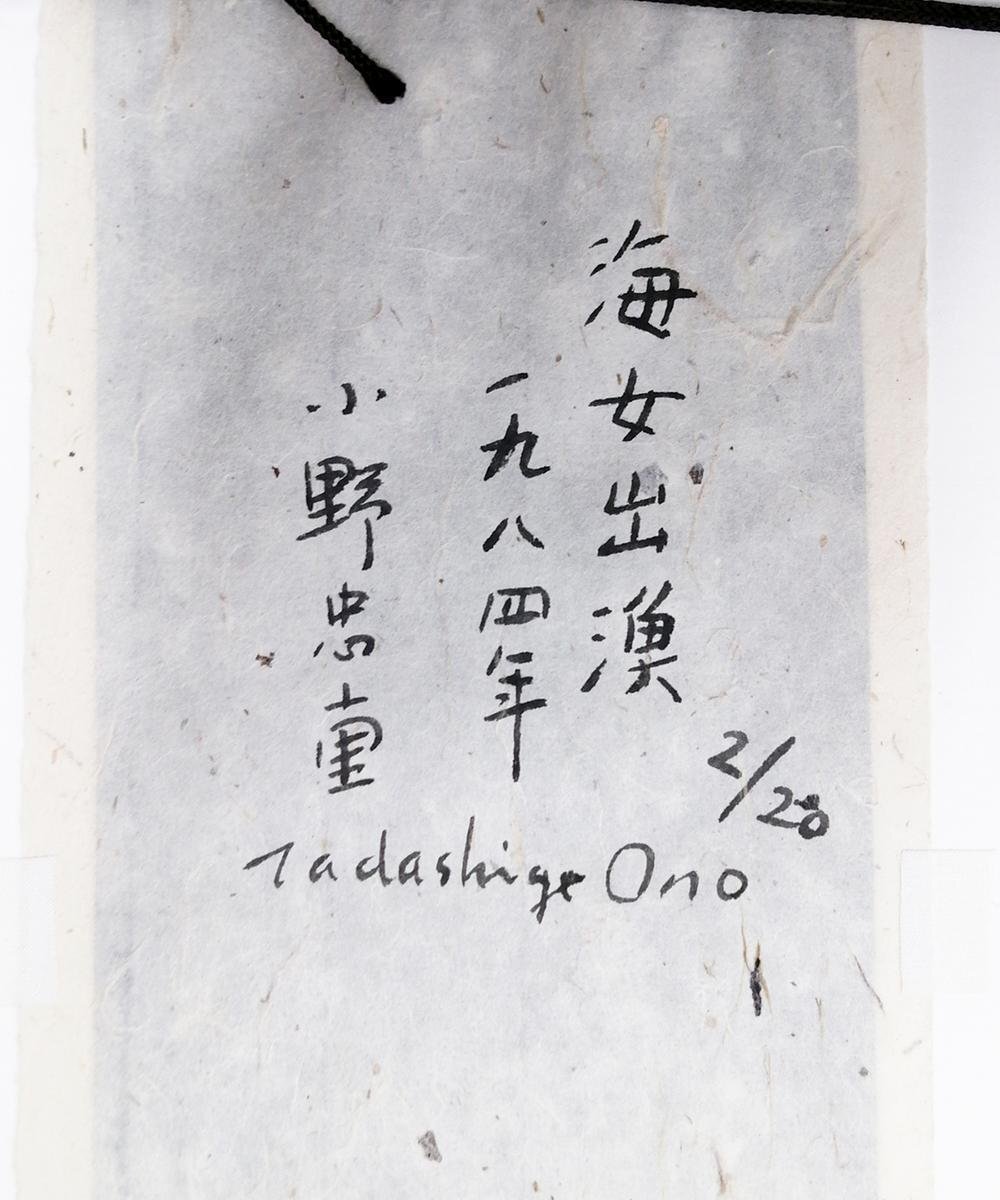 海女出漁
一九八四年
小野忠重
2/20
Tadashige Ono